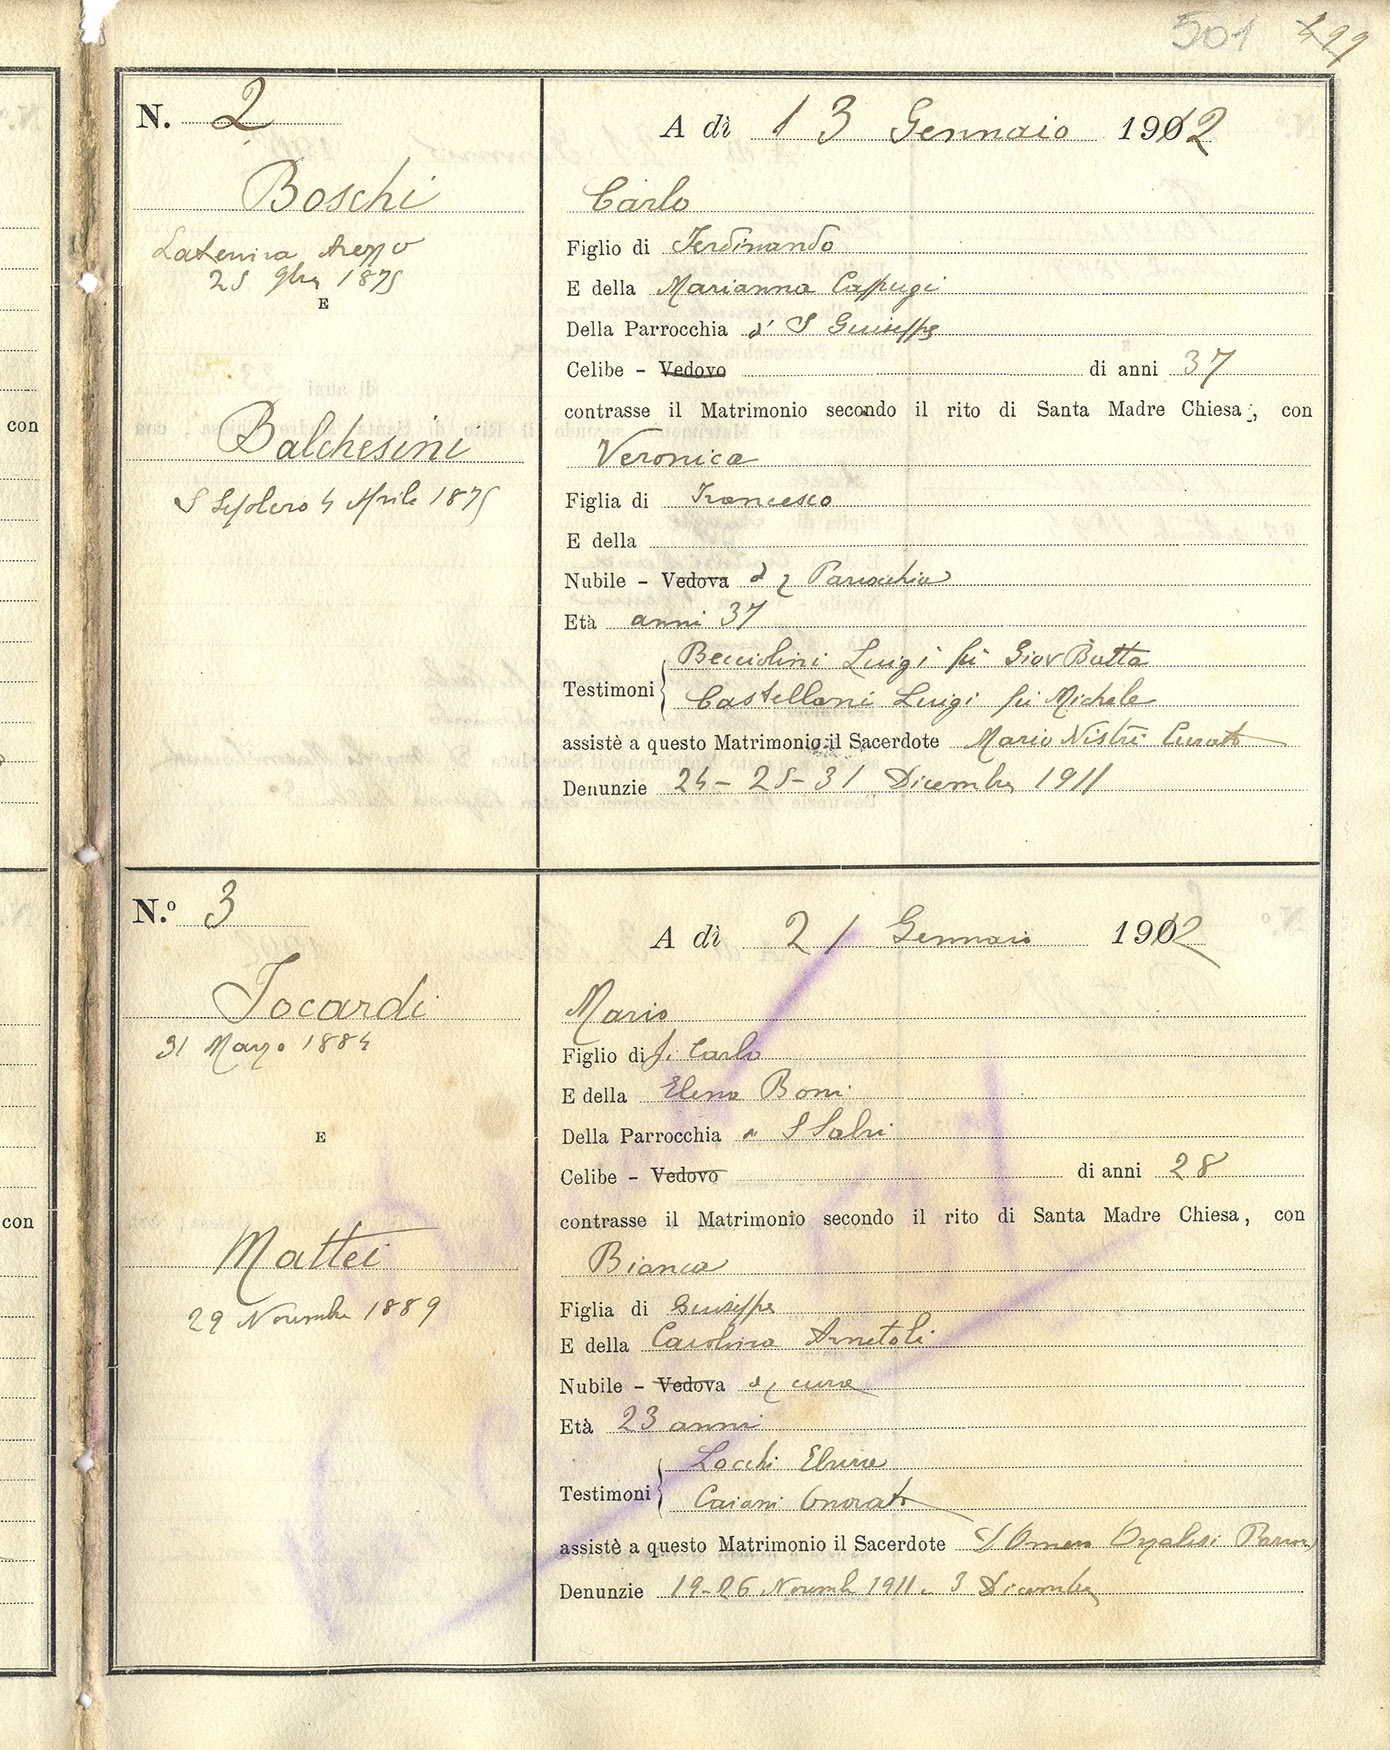 501 499
N. 2
A dì 13 Gennaio 1912
Boschi
Carlo
Laterina Arezzo
25 9bre 1875
Figlio di Ferdinando
E
E della Marianna Capugi
Della Parrocchia d' S Giuseppe
Celibe - Vedovo di anni 37
contrasse il Matrimonio secondo il rito di Santa Madre Chiesa, con
Balchesini
Veronica
S Sepolcro 4 Aprile 1875
Figlia di Francesco
E della
Nubile - Vedova d q Parrocchia
Età anni 37
Testimoni Becciolini Luigi fu Giov Batta
Castellani Luigi fu Michele
assistè a questo Matrimonio il Sacerdote Mario Nistri Curato
Denunzie 24 - 25 - 31 Dicembre 1911
N.º 3
A dì 21 Gennaio 1912
Jocardi
Mario
31 Marzo 1884
Figlio di fu Carlo
E della Elena Boni
E
Della Parrocchia a S Salvi
Celibe - Vedovo di anni 28
contrasse il Matrimonio secondo il rito di Santa Madre Chiesa, con
Mattei
Bianca
29 Novembre 1889
Figlia di Giuseppe
E della Carolina Arnetoli
Nubile - Vedova d q cura
Età 23 anni
Testimoni Locchi
Caiani Onorato
assistè a questo Matrimonio il Sacerdote D
Denunzie 19-26 Novembre 1911 - 3 Dicembre
con
con